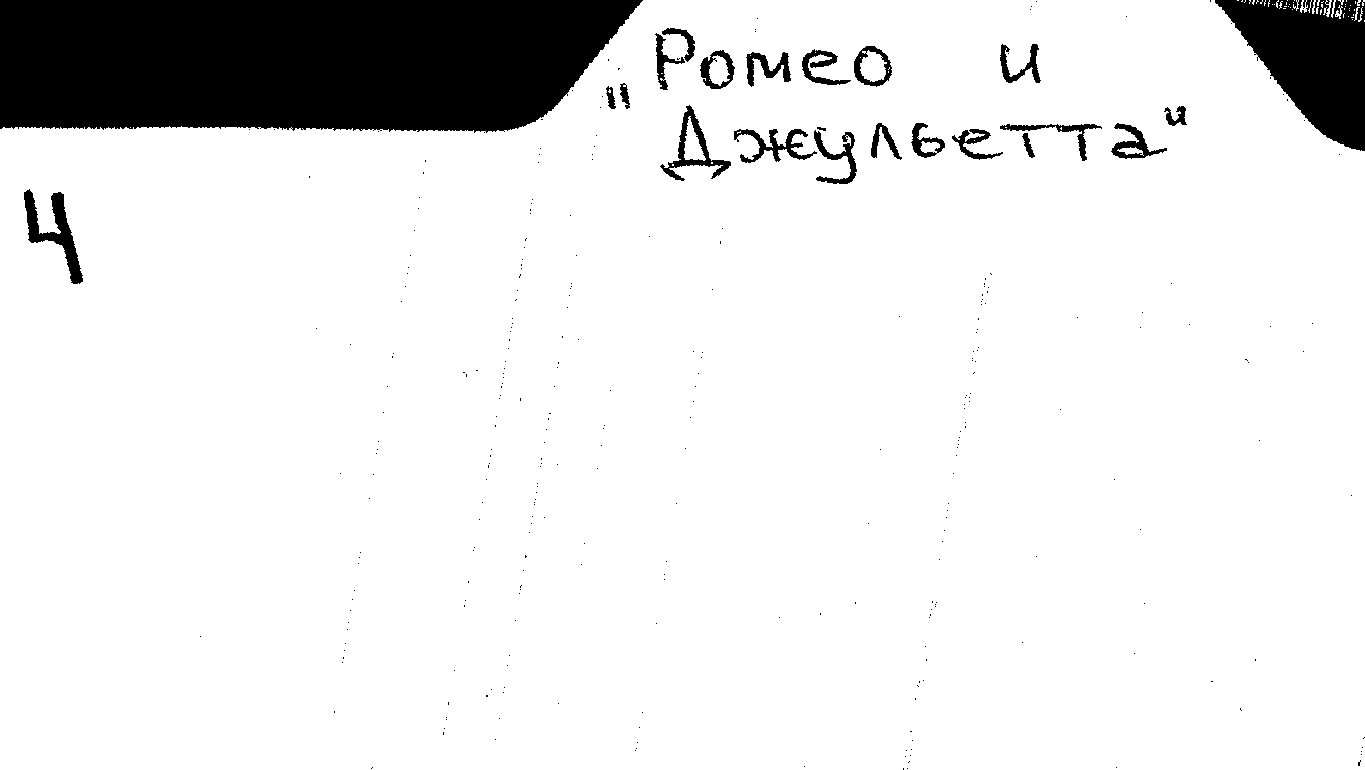 "Ромео и
Джульетта"
4